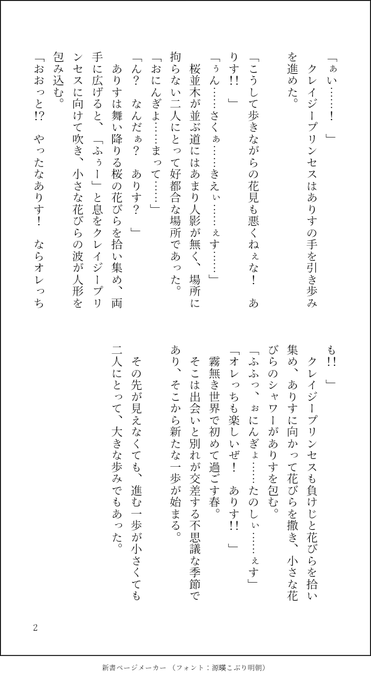 「ぁぃ……！　」
　クレイジープリンセスはありすの手を引き歩み
を進めた。
「こうして歩きながらの花見も悪くねぇな！　あ
りす!!　」
「ぅん……さくぁ……きえぃ……ぇす……」
　桜並木が並ぶ道にはあまり人影が無く、場所に
拘らない二人にとって好都合な場所であった。
「おにんぎょ……まって……」
「ん？　なんだぁ？　ありす？　」
　ありすは舞い降りる桜の花びらを拾い集め、両
手に広げると、「ふぅー」と息をクレイジープリ
ンセスに向けて吹き、小さな花びらの波が人形を
包み込む。
「おおっと!?　やったなありす！　ならオレっち
も!!　」
　クレイジープリンセスも負けじと花びらを拾い
集め、ありすに向かって花びらを撒き、小さな花
びらのシャワーがありすを包む。
「ふふっ、ぉにんぎょ……たのしぃ……ぇす」
「オレっちも楽しいぜ！　ありす!!　」
　霧無き世界で初めて過ごす春。
　そこは出会いと別れが交差する不思議な季節で
あり、そこから新たな一歩が始まる。
　その先が見えなくても、進む一歩が小さくても
二人にとって、大きな歩みでもあった。
2
新書ページメーカー（フォント：源暎こぶり明朝）